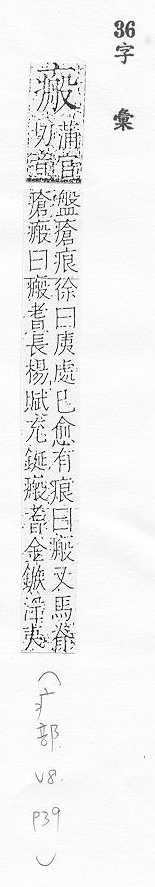 36
字彙
瘢
蒲官
切音
盤瘡痕徐曰痍處已愈有痕曰瘢又馬脊
瘡瘢曰瘢耆長楊賦充鋋瘢耆金鏃淫夷
(疒部 v8. p39)